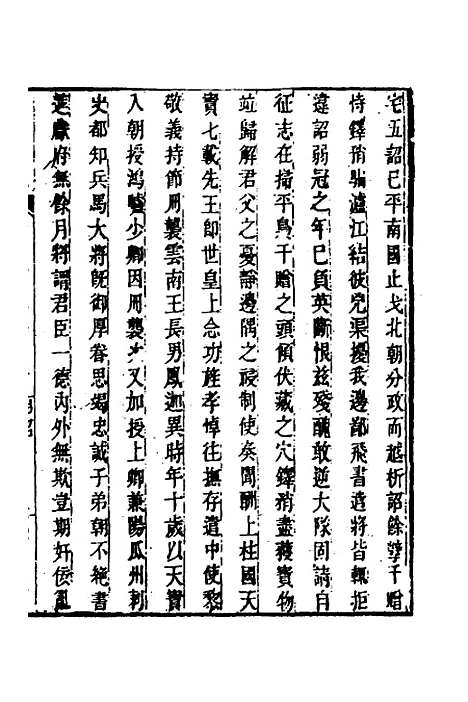 宅五詔已平南國止戈北朝分政而越析詔餘孽于贈
恃鐸矟騙瀘江結彼兇渠擾我邊鄙飛書遣將皆輒拒
違詔弱冠之年已負英斷恨兹殘醜敢逆大隊固請自
征志在掃平梟于贈之頭傾伏藏之穴鐸矟盡獲寶物
竝歸解君父之憂靜邊隅之祲制使奏聞酬上柱國天
寶七載先王即世皇上念功旌孝悼往撫存遣中使黎
敬義持節册襲雲南王長男鳳迦異時年十歲以天寶
入朝授鴻臚少卿因册襲次又加授上卿兼陽瓜州刺
史都知兵馬大將既御厚眷思竭忠誠子弟朝不絶書
進獻府無餘月將謂君臣一德內外無欺豈期奸佞亂